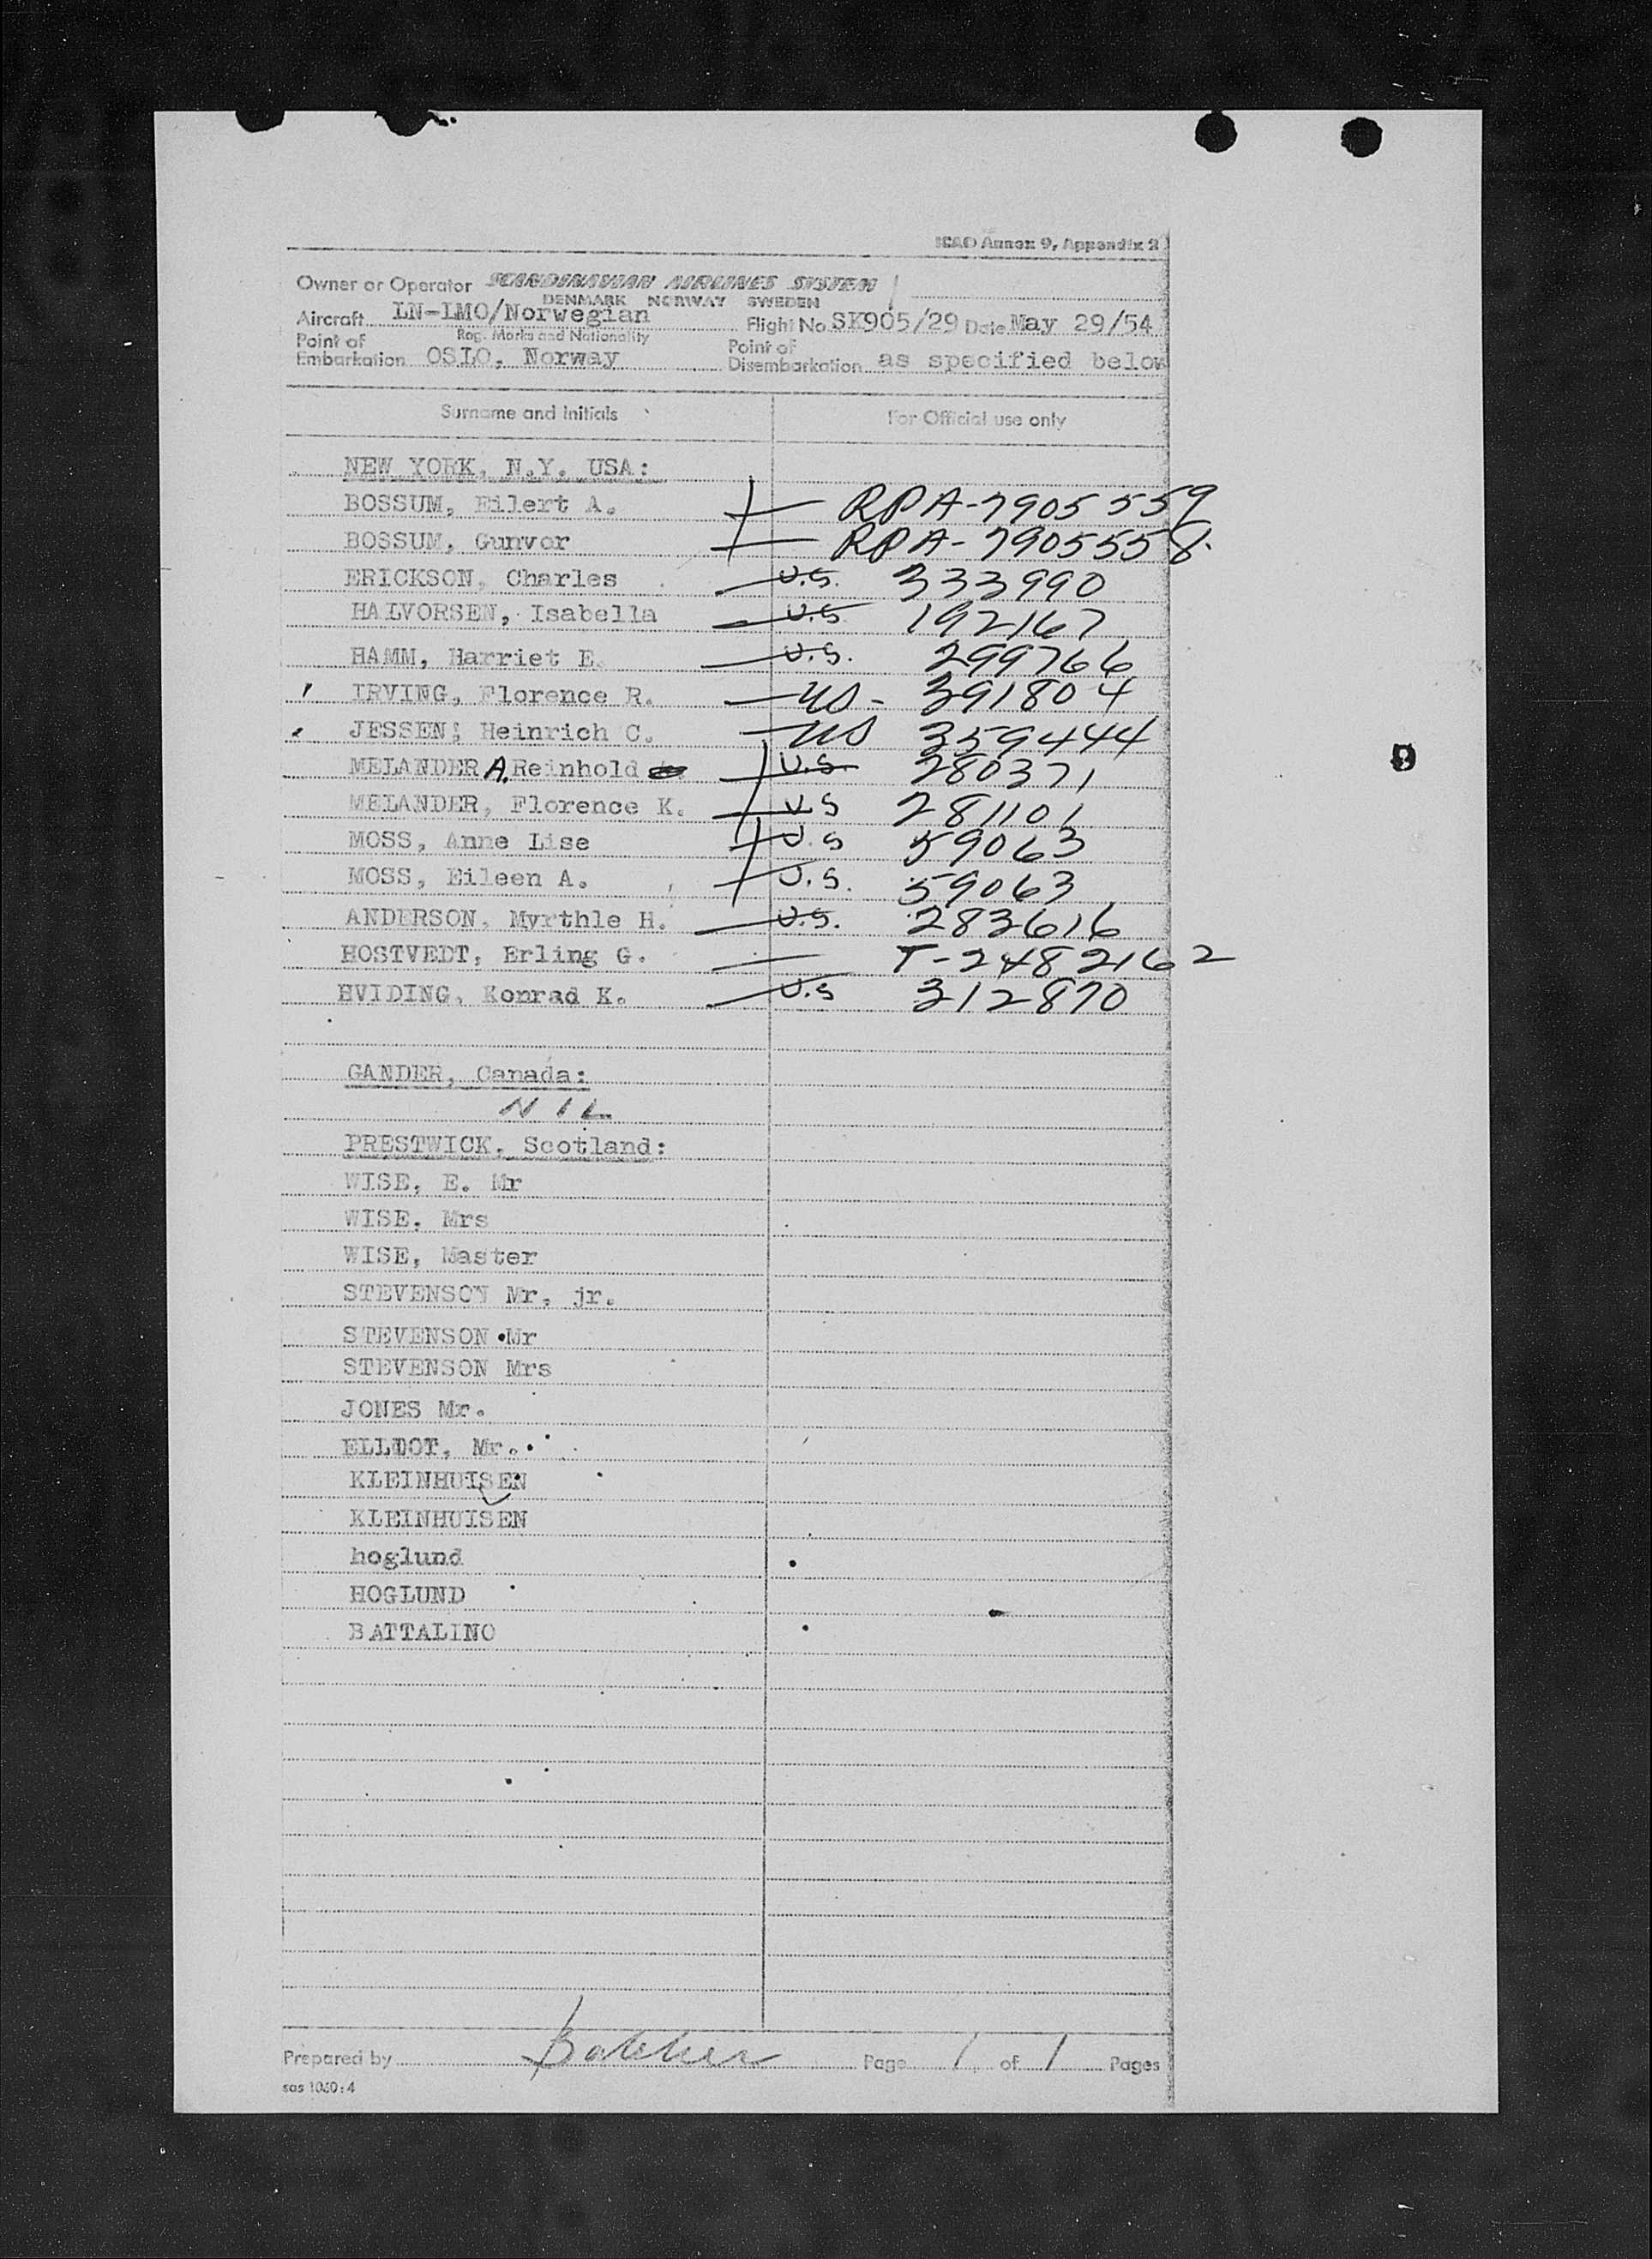 ICAO Annex 9, Appendix 2
Owner or Operator SCANDINAVIAN AIRLINES SYSTEM
DENMARK NORWAY SWEDEN
Aircraft LN-LMO/Norwegian Flight No. SK905/29 Date May 29/54
Reg. Marks and Nationality
Point of Embarkation OSLO, Norway Point of Disembarkation as specified below
Surname and Initials For Official use only
NEW YORK, N.Y. USA:
BOSSUM, Eilert A. RPA-7905559
BOSSUM, Gunvor RPA-7905558
ERICKSON, Charles U.S. 333990
HALVORSEN, Isabella U.S. 192167
HAMM, Harriet E. U.S. 299766
IRVING, Florence R. US - 391804
JESSEN, Heinrich C. US 359444
MELANDER A. Reinhold U.S. 280371
MELANDER, Florence K. U.S 281101
MOSS, Anne Lise U.S 59063
MOSS, Eileen A. U.S. 59063
ANDERSON, Myrthle H. U.S. 283616
HOSTVEDT, Erling G. T-2482162
HVIDING, Konrad K. U.S 312870
GANDER, Canada:
NIL
PRESTWICK, Scotland:
WISE, E. Mr
WISE, Mrs
WISE, Master
STEVENSON Mr, jr.
STEVENSON Mr
STEVENSON Mrs
JONES Mr.
Mr.
KLEINHUISEN
KLEINHUISEN
hoglund
HOGLUND
BATTALINO
Prepared by Page 1 of 1 Pages
sas 1060:4